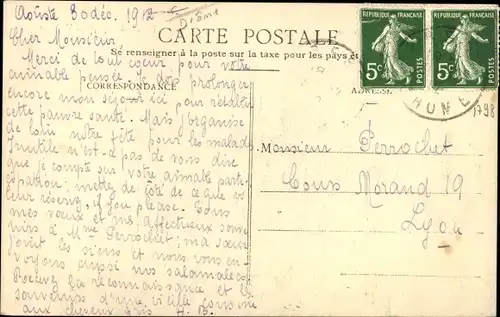 Aouste 30 déc. 1912
Drôme
CARTE POSTALE
Se renseigner à la poste sur la taxe pour les pays et
CORRESPONDANCE
ADRESSE
REPUBLIQUE FRANÇAISE
5c POSTES
REPUBLIQUE FRANÇAISE
5c POSTES
1798
Cher Monsieur
Merci de tout cœur pour votre
aimable pensée. Je dois prolonger
encore mon séjour ici pour rétablir
cette pauvre santé. Mais j'organise
de loin notre fête pour les malad.
Inutile n'est-ce pas de vous dire
que je compte sur votre aimable parti-
cipation; mettez de côté de ce que
leur réserv, if you please. Tous
mes vœux et mes affectueux souve-
nirs à Mme Perrochet; ma sœur
joint les siens et nous vous en-
voyons aussi nos salamalecs.
Recevez la reconnaissance et les
souvenirs d'une vieille cousine
aux cheveux gris A. B.
Monsieur Perrochet
Cours Morand 19
Lyon